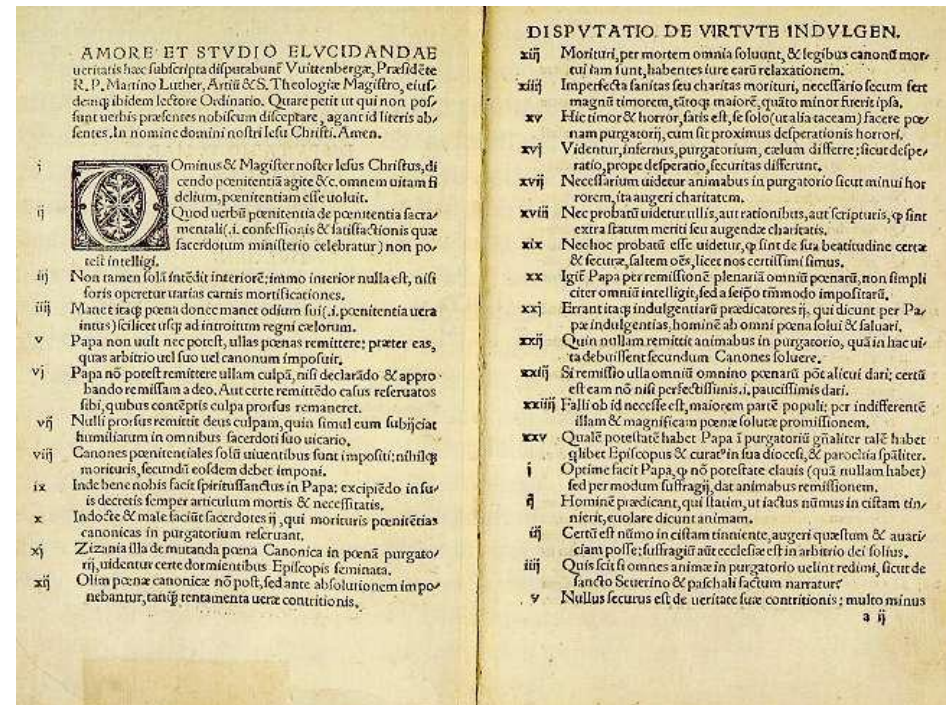 AMORE ET STVDIO ELVCIDANDAE
ueritatis hæc subscripta disputabunť Vuittenbergæ, Præsidēte
R. P. Martino Luther, Artiū & S. Theologiæ Magistro, eius/
demq; ibidem lectore Ordinario. Quare petit ut qui non pos/
sunt uerbis præsentes nobiscum disceptare, agant id literis ab/
sentes. In nomine domini nostri Iesu Christi. Amen.
i DOminus & Magister noster Iesus Christus, di
cendo pœnitentiā agite &c. omnem uitam fi
delium, pœnitentiam esse uoluit.
ij Quod uerbū pœnitentia de pœnitentia sacra/
mentali (.i. confessionis & satisfactionis quæ
sacerdotum ministerio celebratur) non po/
test intelligi.
iij Non tamen solā intēdit interiorē: immo interior nulla est, nisi
foris operetur uarias carnis mortificationes.
iiij Manet itaq; pœna donec manet odium sui (.i. pœnitentia uera
intus) scilicet usq; ad introitum regni cælorum.
v Papa non uult nec potest, ullas pœnas remittere: præter eas,
quas arbitrio uel suo uel canonum imposuit.
vj Papa nō potest remittere ullam culpā, nisi declarādo & appro/
bando remissam a deo. Aut certe remittēdo casus reseruatos
sibi, quibus contēptis culpa prorsus remaneret.
vij Nulli prorsus remittit deus culpam, quin simul eum subijciat
humiliatum in omnibus sacerdoti suo uicario.
viij Canones pœnitentiales solū uiuentibus sunt impositi: nihilq;
morituris, secundū eosdem debet imponi.
ix Inde bene nobis facit spiritussanctus in Papa: excipiēdo in su/
is decretis semper articulum mortis & necessitatis.
x Indocte & male faciūt sacerdotes ij, qui morituris pœnitētias
canonicas in purgatorium reseruant.
xj Zizania illa de mutanda pœna Canonica in pœnā purgato/
rij, uidentur certe dormientibus Episcopis seminata.
xij Olim pœnæ canonicæ nō post, sed ante absolutionem impo/
nebantur, tanq̄ tentamenta ueræ contritionis.
DISPVTATIO DE VIRTVTE INDVLGEN.
xiij Morituri, per mortem omnia soluunt, & legibus canonū mor/
tui iam sunt, habentes iure earū relaxationem.
xiiij Imperfecta sanitas seu charitas morituri, necessario secum fert
magnū timorem, tātoq; maiorē, quāto minor fuerit ipsa.
xv Hic timor & horror, satis est, se solo (ut alia taceam) facere pœ/
nam purgatorij, cum sit proximus desperationis horrori.
xvj Videntur, infernus, purgatorium, cælum differre: sicut despe/
ratio, prope desperatio, securitas differunt.
xvij Necessarium uidetur animabus in purgatorio sicut minui hor
rorem, ita augeri charitatem.
xviij Nec probatū uidetur ullis, aut rationibus, aut scripturis, ꝙ sint
extra statum meriti seu augendæ charitatis.
xix Nec hoc probatū esse uidetur, ꝙ sint de sua beatitudine certæ
& securæ, saltem oēs, licet nos certissimi simus.
xx Igiť Papa per remissionē plenariā omniū pœnarū, non simpli
citer omniū intelligit, sed a seipo tm̄modo impositarū.
xxj Errant itaq; indulgentiarū prædicatores ij, qui dicunt per Pa/
pæ indulgentias, hominē ab omni pœna solui & saluari.
xxij Quin nullam remittit animabus in purgatorio, quā in hac ui/
ta debuissent secundum Canones soluere.
xxiij Si remissio ulla omniū omnino pœnarū pōt alicui dari: certū
est eam nō nisi perfectissimis .i. paucissimis dari.
xxiiij Falli ob id necesse est, maiorem partē populi: per indifferentē
illam & magnificam pœnæ solutæ promissionem.
xxv Qualē potestatē habet Papa ī purgatoriū gn̄aliter talē habet
qlibet Episcopus & curat9 in sua diocesi, & parochia spāliter.
j Optime facit Papa, ꝙ nō potestate clauis (quā nullam habet)
sed per modum suffragij, dat animabus remissionem.
ij Hominē prædicant, qui statim, ut iactus nūmus in cistam tin/
nierit, euolare dicunt animam.
iij Certū est nūmo in cistam tinniente, augeri quæstum & auari/
ciam posse: suffragiū aūt ecclesiæ est in arbitrio dei solius.
iiij Quis scit si omnes animæ in purgatorio uelint redimi, sicut de
sancto Seuerino & paschali factum narratur?
v Nullus securus est de ueritate suæ contritionis: multo minus
a ij